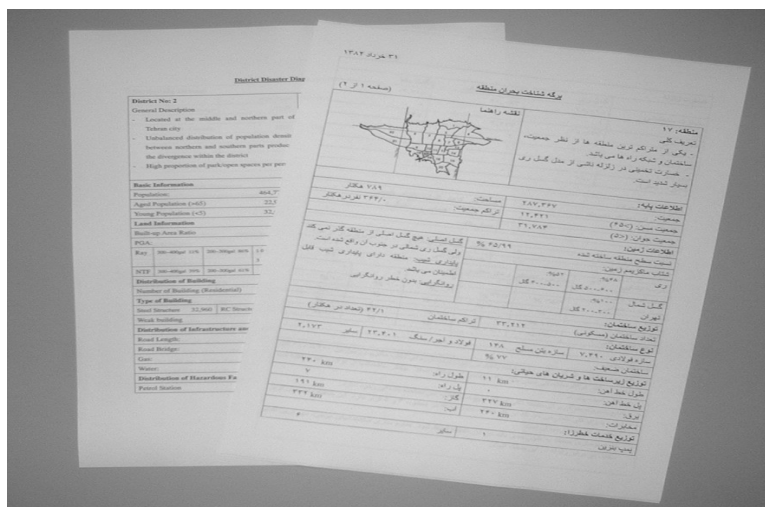 District Disaster Diag
District No: 2
General Description
- Located at the middle and northern part of
Tehran city
- Unbalanced distribution of population densit
between northern and southern parts produc
the divergence within the district
- High proportion of park/open spaces per pers
Basic Information
Population: 464,7
Aged Population (>65)
Young Population (<5)
Land Information
Built-up Area Ratio
PGA:
Ray
NTF
Distribution of Building
Number of Building (Residential)
Type of Building
Steel Structure 32,960 RC Struct
Weak building
Distribution of Infrastructure and
Road Length:
Road Bridge:
Gas:
Water:
Distribution of Hazardous Fa
Petrol Station
۳۱ خرداد ۱۳۸۴
برگه شناخت بحران منطقه
(صفحه ۱ از ۲)
منطقه: ۱۷
نقشه راهنما
تعریف کلی
- یکی از متراکم ترین منطقه ها از نظر جمعیت،
ساختمان و شبکه راه ها می باشد.
- خسارت تخمینی در زلزله ناشی از مدل گسل ری
بسیار شدید است.
اطلاعات پایه:
جمعیت: ۲۸۷,۳۶۷ مساحت: ۷۸۹ هکتار
جمعیت مسن: (>۶۵) ۱۲,۴۲۱ تراکم جمعیت:
جمعیت جوان: (<۵) ۳۱,۷۸۳
اطلاعات زمین:
نسبت سطح منطقه ساخته شده ۶۵/۹۹ %
شتاب ماکزیمم زمین:
ری
گسل شمال
تهران
گسل اصلی: هیچ گسل اصلی از منطقه گذر نمی کند
ولی گسل ری شمالی در جنوب آن واقع شده است.
پایداری شیب: منطقه دارای پایداری شیب قابل
اطمینان می باشد.
روانگرایی: بدون خطر روانگرایی
توزیع ساختمان:
تعداد ساختمان (مسکونی) ۳۳,۲۱۴ تراکم ساختمان ۴۲/۱ (تعداد در هکتار)
نوع ساختمان:
سازه فولادی ۷,۴۹۰ سازه بتن مسلح ۱۳۸ فولاد و آجر/ سنگ ۲۳,۴۰۱ سایر ۲,۱۷۳
ساختمان ضعیف: ۷۷ %
توزیع زیرساخت ها و شریان های حیاتی:
طول خط آهن: ۱۱ km طول راه: ۲۳۰ km
پل خط آهن: پل راه: ۷
برق: ۳۲۷ km گاز: ۱۹۱ km
مخابرات: ۲۳۰ km آب: ۳۳۲ km
توزیع خدمات خطرزا:
پمپ بنزین ۱ سایر ۶